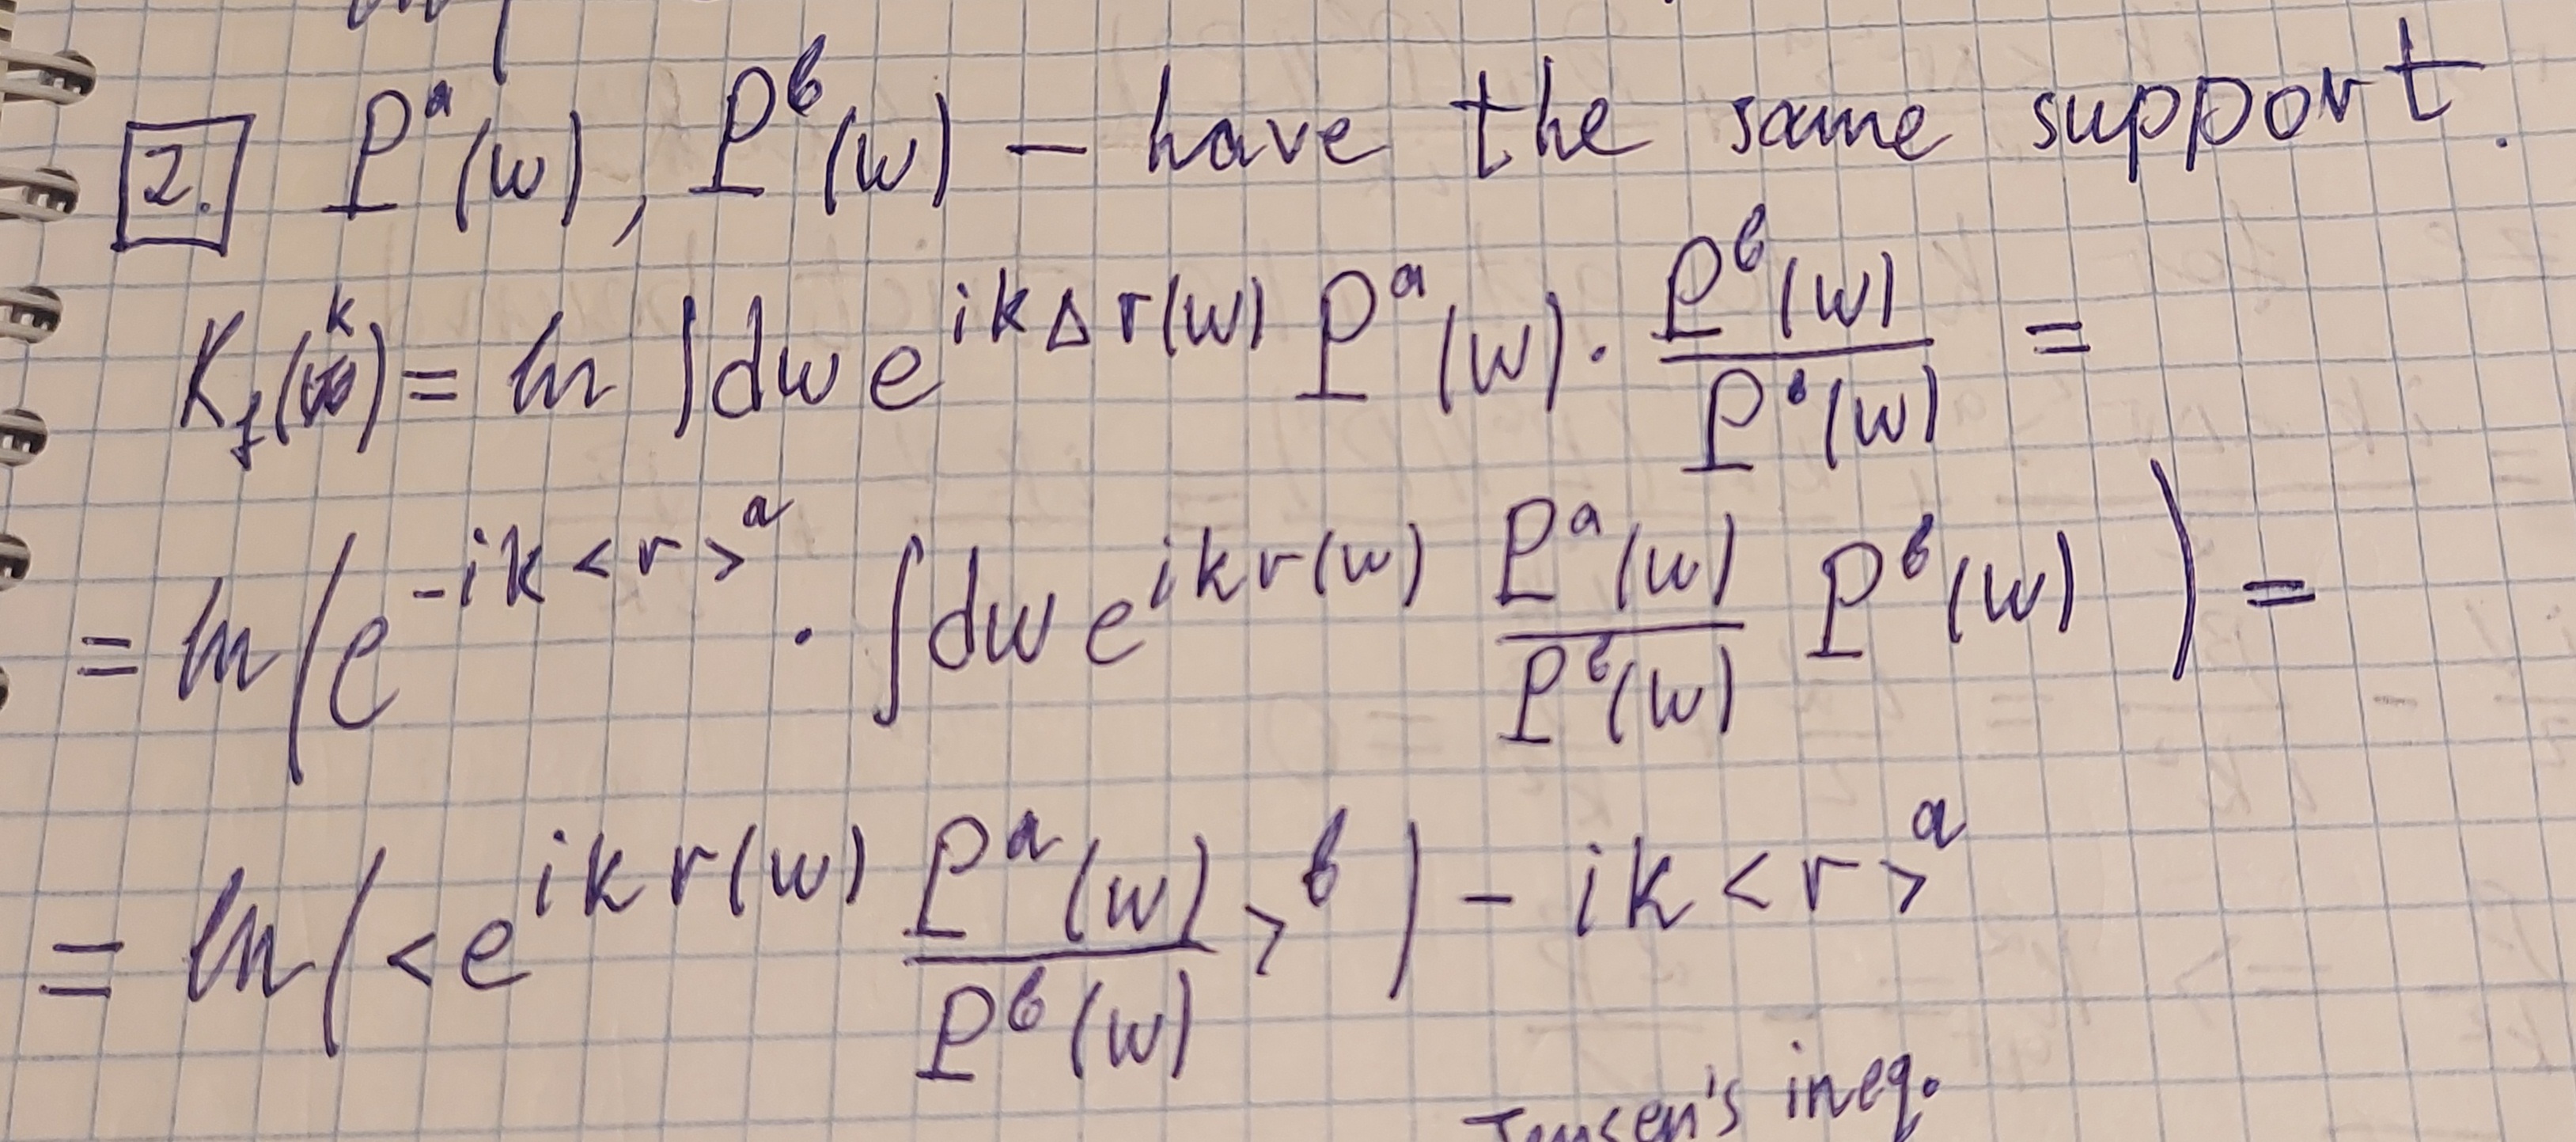 2. P^a(w), P^b(w) – have the same support.
K_f(k) = ln ∫dw e^{ikΔr(w)} P^a(w) · \frac{P^b(w)}{P^b(w)} =
= ln(e^{-ik<r>^a} · ∫dw e^{ikr(w)} \frac{P^a(w)}{P^b(w)} P^b(w)) =
= ln(<e^{ikr(w)} \frac{P^a(w)}{P^b(w)}>^b) - ik<r>^a
Jensen's ineq.